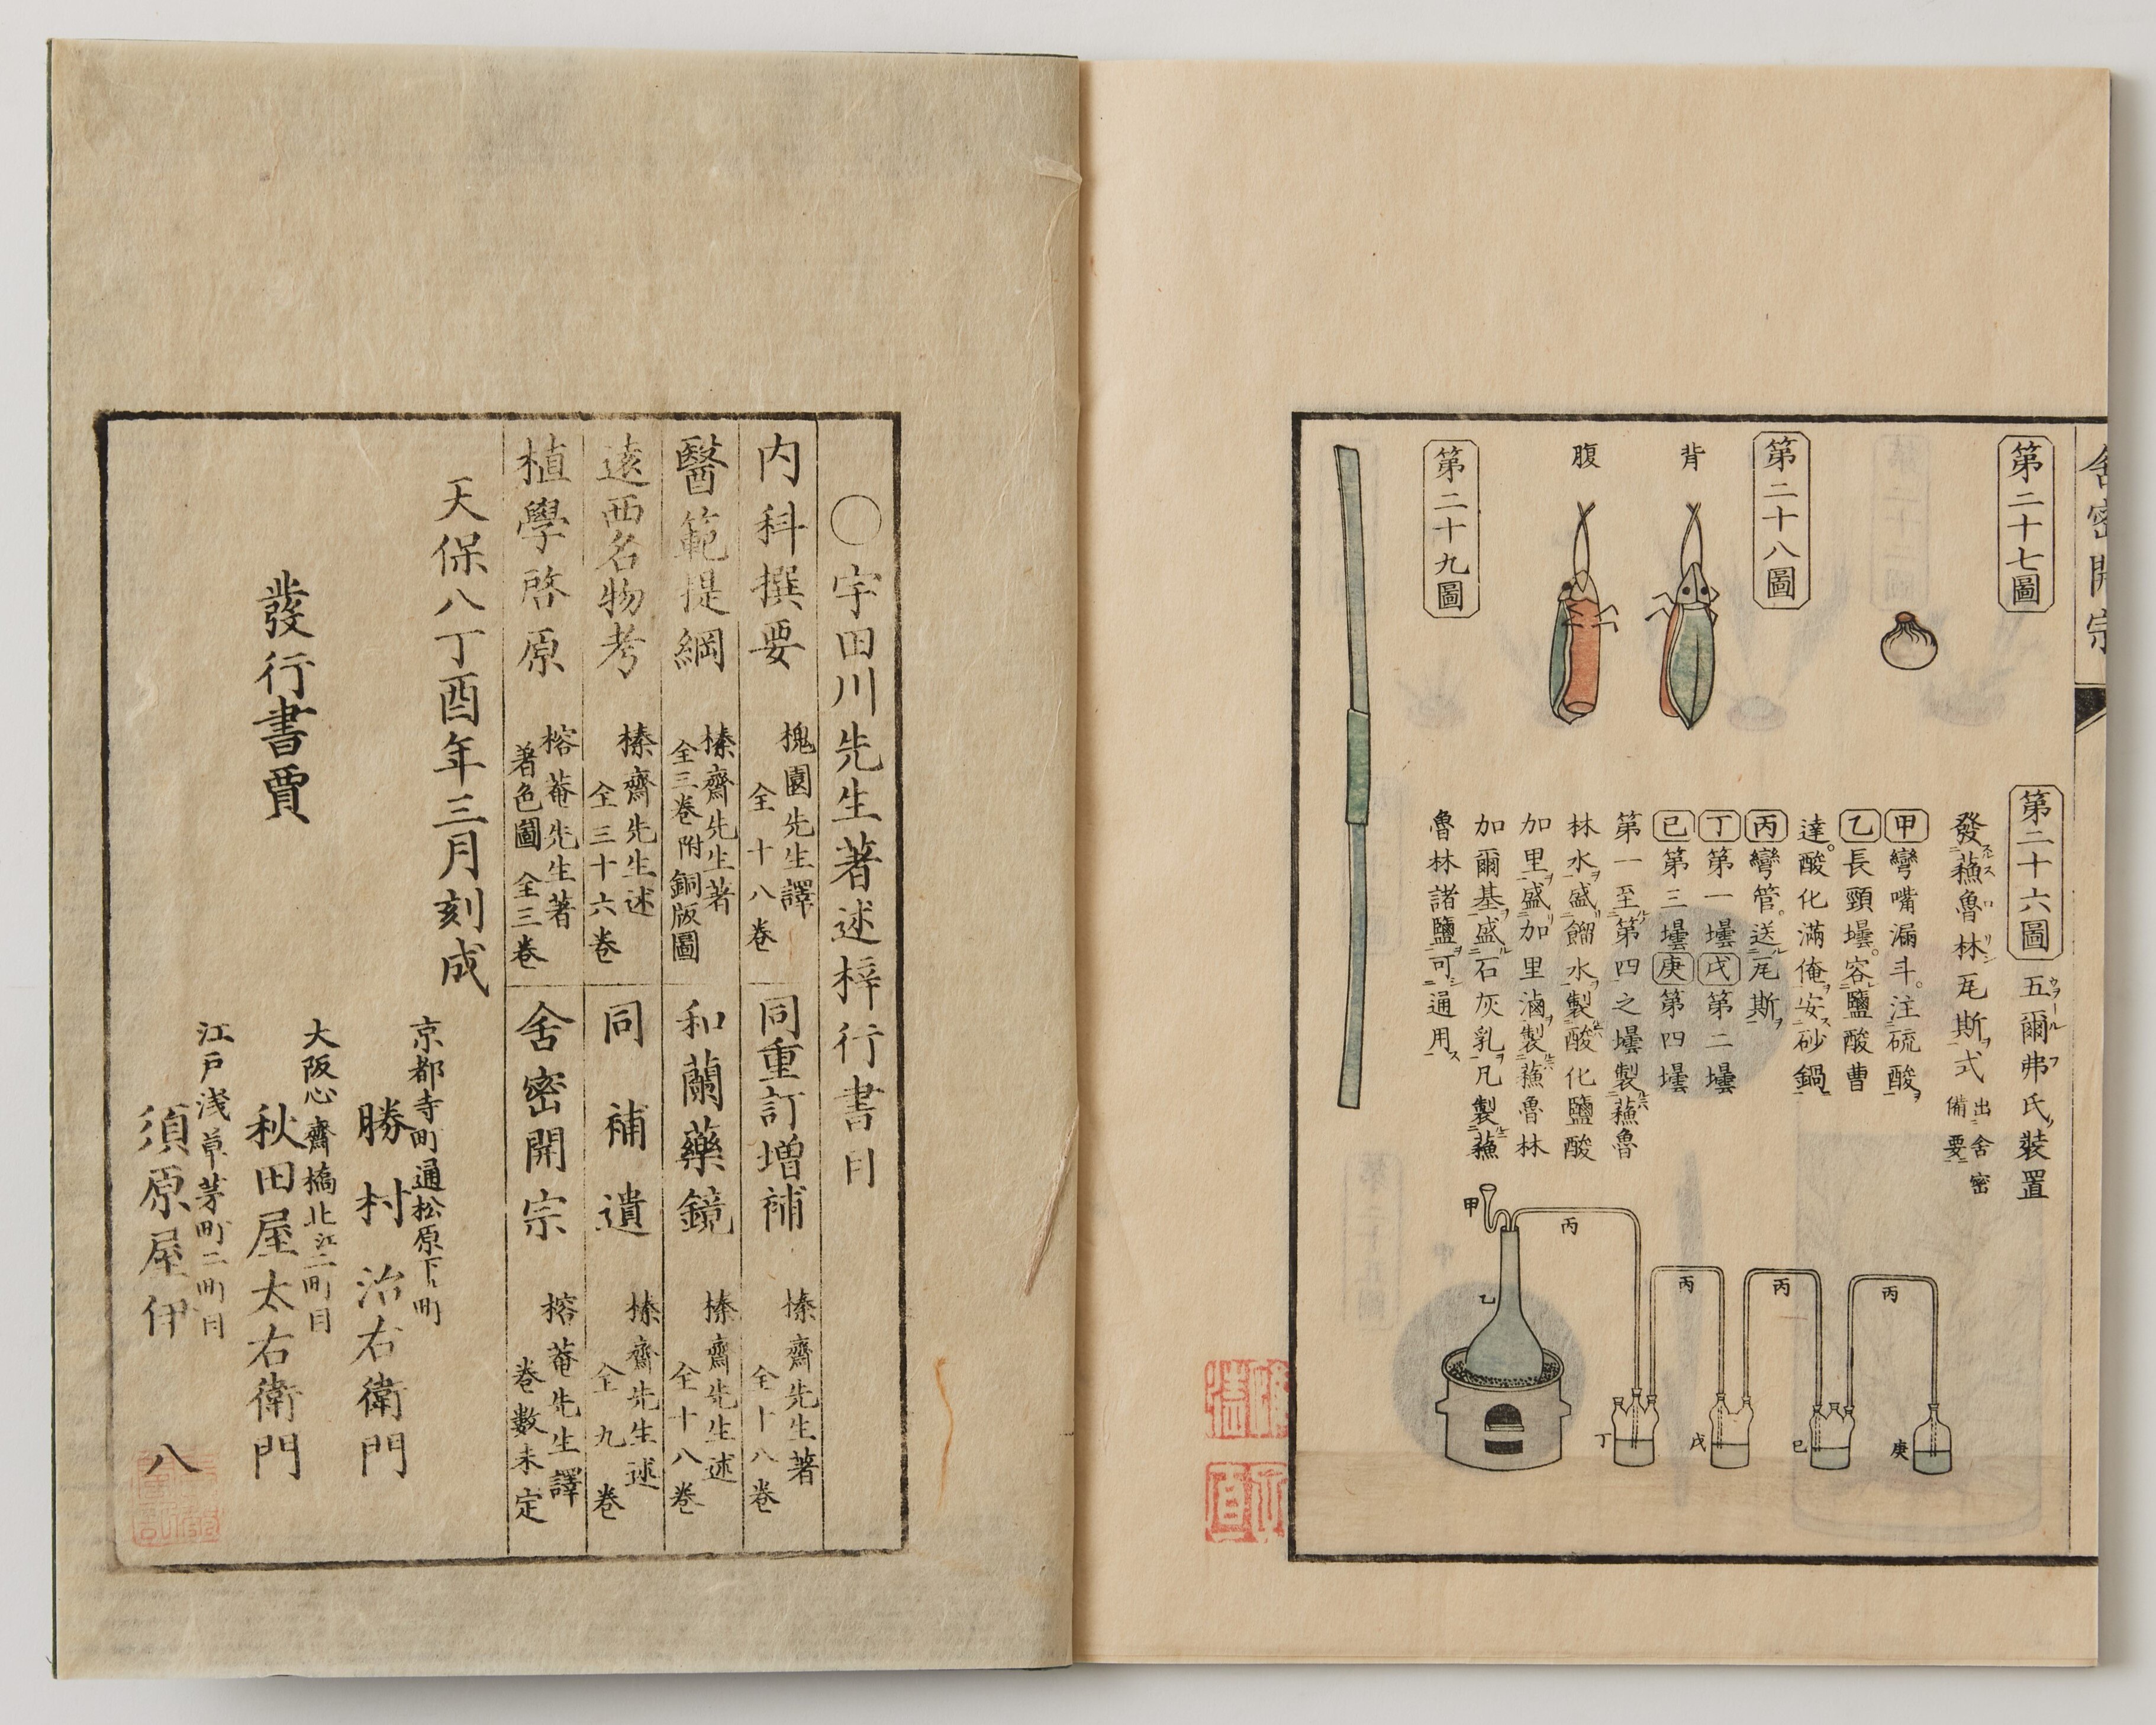 舍密開宗
第二十七圖
第二十八圖
背
腹
第二十九圖
第二十六圖 五爾弗氏裝置
ウヲールフ
發蘓魯林瓦斯式 出舍密備要
甲彎嘴漏斗。注硫酸
乙長頸壜。容鹽酸曹
達。酸化滿俺安砂鍋
丙彎管。送瓦斯
丁第一壜戊第二壜
已第三壜庚第四壜
第一至第四之壜製蘓魯
林水盛餾水製酸化鹽酸
加里盛加里滷製蘓魯林
加爾基盛石灰乳凡製蘓
魯林諸鹽可通用
甲
乙
丙
丙
丙
丙
丁
戊
已
庚
〇宇田川先生著述梓行書目
内科撰要 槐園先生譯 全十八巻
同重訂増補 榛齋先生著 全十八巻
醫範提綱 榛齋先生著 全三巻附銅版圖
和蘭藥鏡 榛齋先生述 全十八巻
遠西名物考 榛齋先生述 全三十六巻
同補遺 榛齋先生述 全九巻
植學啓原 榕菴先生著 著色圖全三巻
舍密開宗 榕菴先生譯 巻數未定
天保八丁酉年三月刻成
發行書賈
京都寺町通松原下ル町
勝村治右衛門
大阪心齋橋北江二町目
秋田屋太右衛門
江戸浅草茅町二町目
須原屋伊八